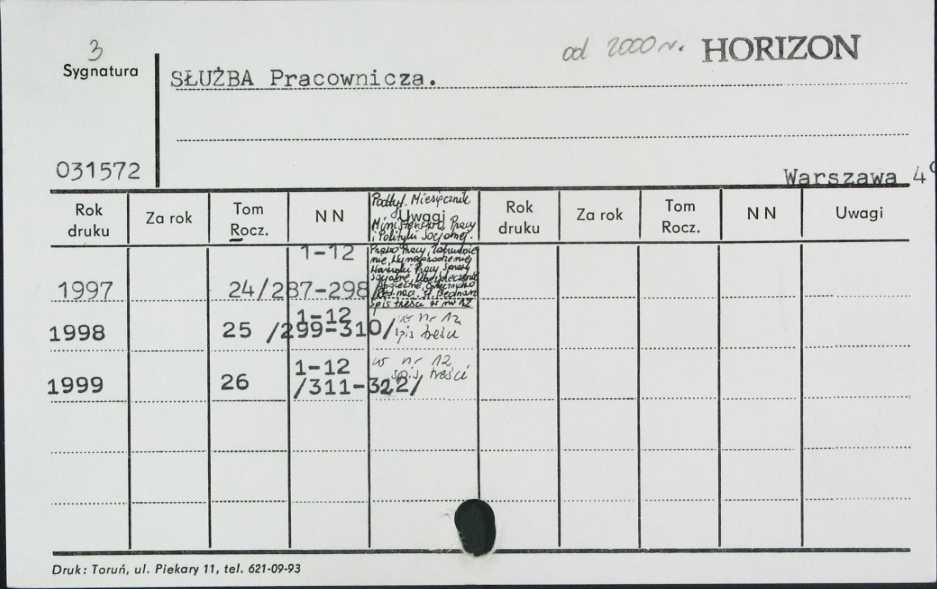 3
od 2000 r. HORIZON
Sygnatura
SŁUŻBA Pracownicza.
031572
Warszawa 4°
Rok druku Za rok Tom Rocz. N N Uwagi Rok druku Za rok Tom Rocz. N N Uwagi
Podtyt. Miesięcznik
Ministerstwa Pracy
i Polityki Socjalnej.
1-12
1997 24/287-298
Prawo Pracy, Zatrudnie
nie, Wynagrodzenie,
Warunki Pracy, Sprawy
Socjalne, Ubezpieczenia
spis treści w nr 12
1-12 w nr 12
1998 25 /299-310/ spis treści
1-12 w nr 12
spis treści
1999 26 /311-322/
Druk: Toruń, ul. Piekary 11, tel. 621-09-93